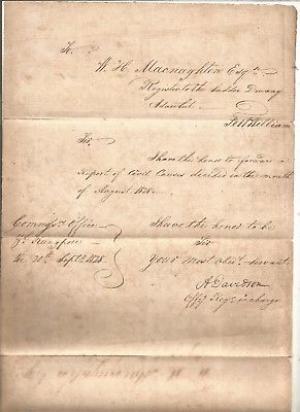 To
W. H. Macnaghten Esqre
Register to the Sudder Dewany
Adawlut
Ft William
Sir,
I have the honor to forward a
Report of Civil Causes decided in the month
of August 1828.
Commrs Office
Rungpore
the 20th Septr 1828
I have the honor to be
Sir
Your most obedt servant
A Davidson
Offg Regr in charge